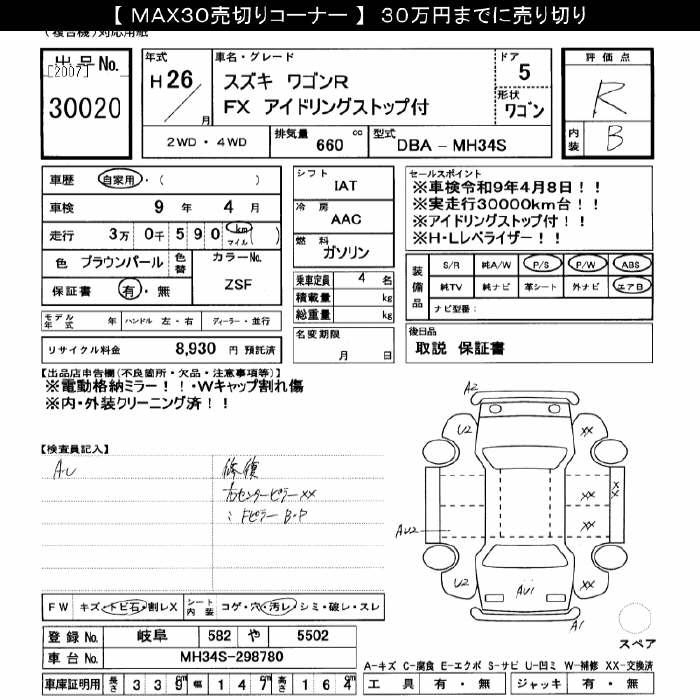 【 MAX30売切りコーナー 】 30万円までに売り切り
(複合機)対応用紙
出品No.
[2007]
30020
年式
H 26
月
車名・グレード
スズキ ワゴンR
FX アイドリングストップ付
ドア
5
形状
ワゴン
評価点
R
内装 B
2WD・4WD
排気量 660 cc
型式 DBA - MH34S
車歴 自家用・( )
車検 9 年 4 月
走行 3万 0千 5 9 0 km マイル ( )
色 ブラウンパール 色替
カラーNo.
ZSF
保証書 有・無
シフト
IAT
冷房
AAC
燃料
ガソリン
乗車定員 4 名
積載量 kg
総重量 kg
セールスポイント
※車検令和9年4月8日!!
※実走行30000km台!!
※アイドリングストップ付!!
※H・Lレベライザー!!
装備品 S/R 純A/W P/S P/W ABS
純TV 純ナビ 革シート 外ナビ エアB
ナビ型番:
モデル年式 年 ハンドル 左・右 ディーラー・並行
リサイクル料金 8,930 円 預託済
名変期限
月 日
後日品
取説 保証書
【出品店申告欄(不良箇所・欠品・注意事項等)】
※電動格納ミラー!!・Wキャップ割れ傷
※内・外装クリーニング済!!
【検査員記入】
AU
修復
右センターピラーXX
〃 Fピラー B・P
A2
U2
XX
XX
XX
XX
AU2
XX
U2
AU1
XX
A1
スペア
FW キズ・トビ石・割レX
シート内装 コゲ・穴・汚レ・シミ・破レ・スレ
登録No. 岐阜 582 や 5502
車台No. MH34S-298780
車庫証明用 長さ 3 3 9 cm 幅 1 4 7 cm 高さ 1 6 4 cm
A-キズ C-腐食 E-エクボ S-サビ U-凹ミ W-補修 XX-交換済
工具 有・無 ジャッキ 有・無